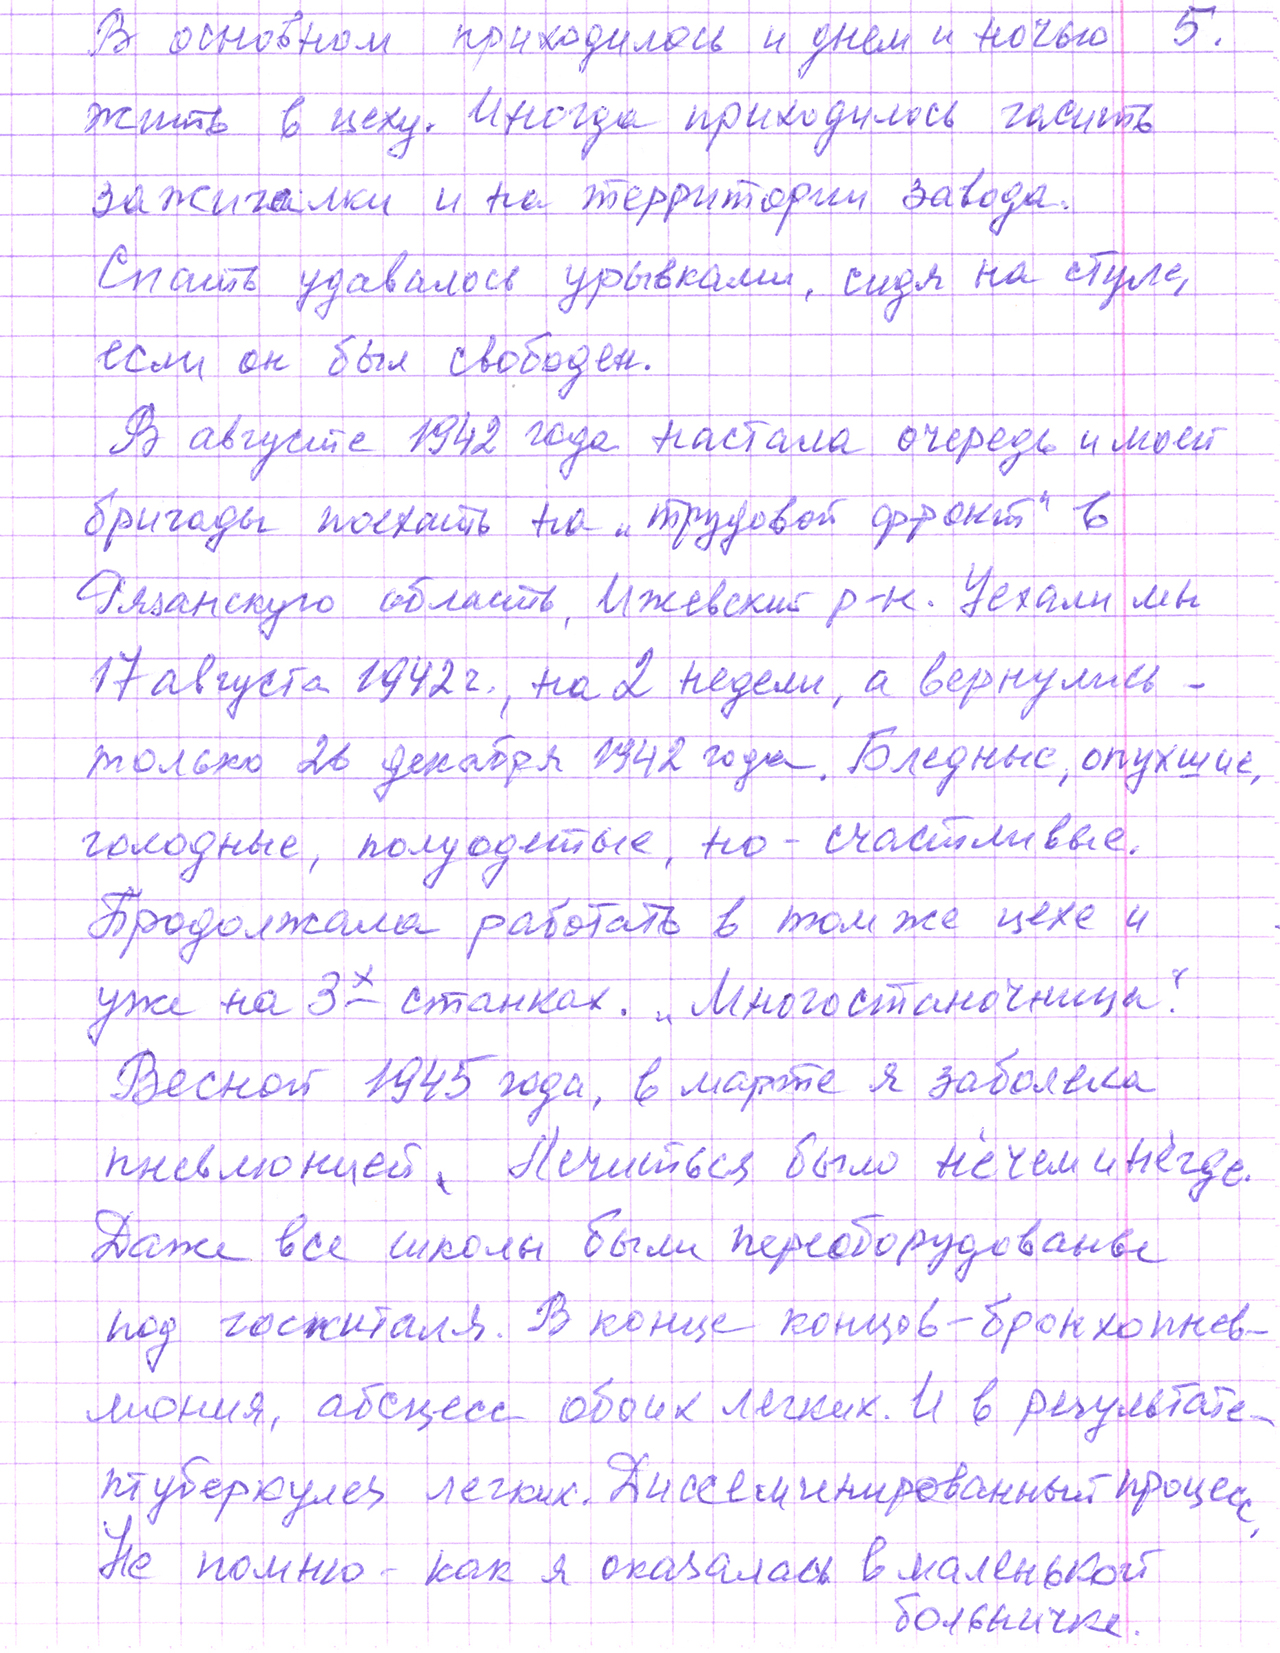 В основном приходилось и днем и ночью 5.
жить в цеху. Иногда приходилось гасить
зажигалки и на территории завода.
Спать удавалось урывками, сидя на стуле,
если он был свободен.
В августе 1942 года настала очередь и моей
бригады поехать на „трудовой фронт“ в
Рязанскую область, Ижевский р-н. Уехали мы
17 августа 1942 г., на 2 недели, а вернулись -
только 26 декабря 1942 года. Бледные, опухшие,
голодные, полуодетые, но - счастливые.
Продолжала работать в том же цехе и
уже на 3х станках. „Многостаночница“.
Весной 1945 года, в марте я заболела
пневмонией. Лечиться было нéчем и нéгде.
Даже все школы были переоборудованы
под госпиталя. В конце концов - бронхопнев-
мония, абсцесс обоих легких. И в результате -
туберкулез легких. Диссеминированный процесс.
Не помню - как я оказалась в маленькой
больничке.